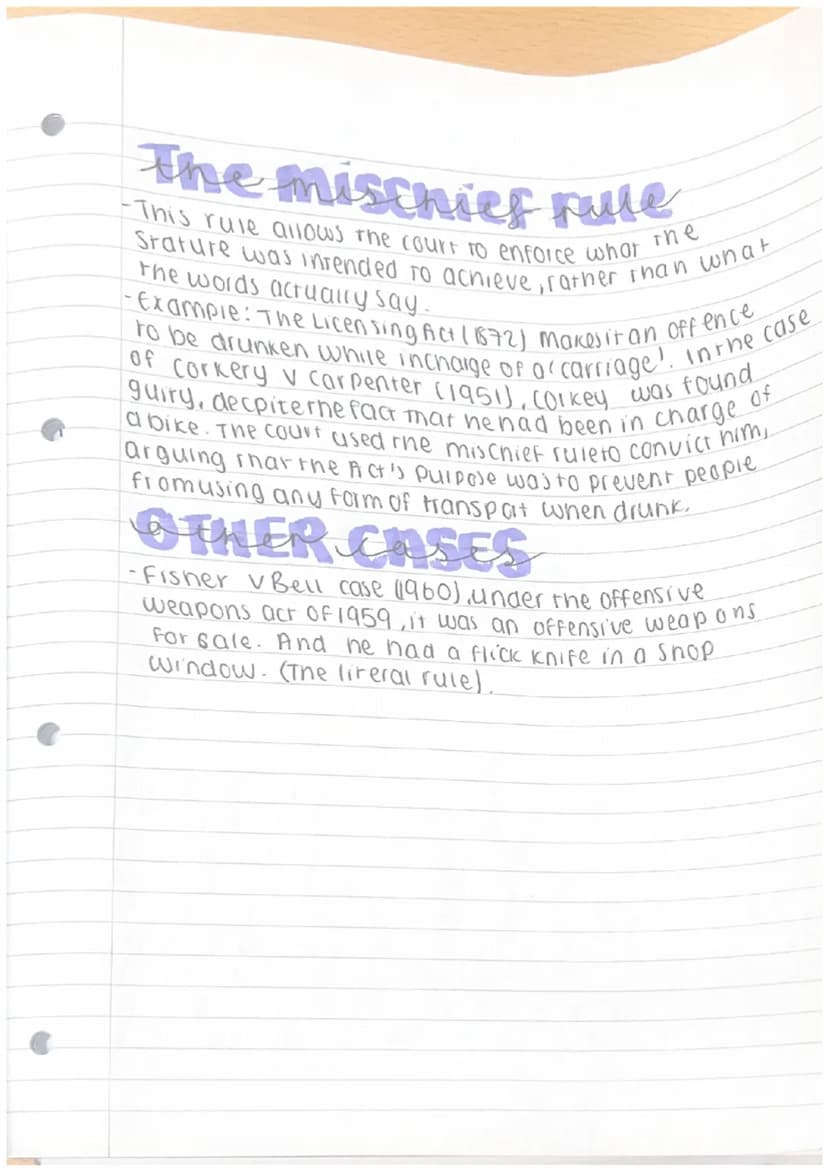 The mischief rule
-This rule allows the court to enforce what the
Stature was intended to achieve, rather than what
the words actually say.
-Example: The Licensing Act (1872) makes it an offence
to be drunken while in charge of a 'carriage'. In the case
of Corkery v Carpenter (1951), Corkey was found
guilty, decpite the fact that he had been in charge of
a bike. The court used the mischief rule to convict him,
arguing that the Act's purpose was to prevent people
from using any form of transport when drunk.
OTHER CASES
-Fisher v Bell case (1960), under the offensive
weapons act of 1959, it was an offensive weapons
for sale. And he had a flick knife in a shop
window. (The literal rule).